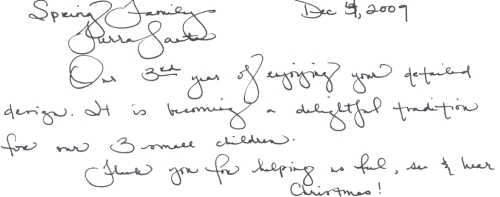 Spring Family Dec 3, 2009
Our 3rd year of enjoying your detailed
design. It is becoming a delightful tradition
for our 3 small children.
Thank you for helping us feel, see & hear
Christmas!